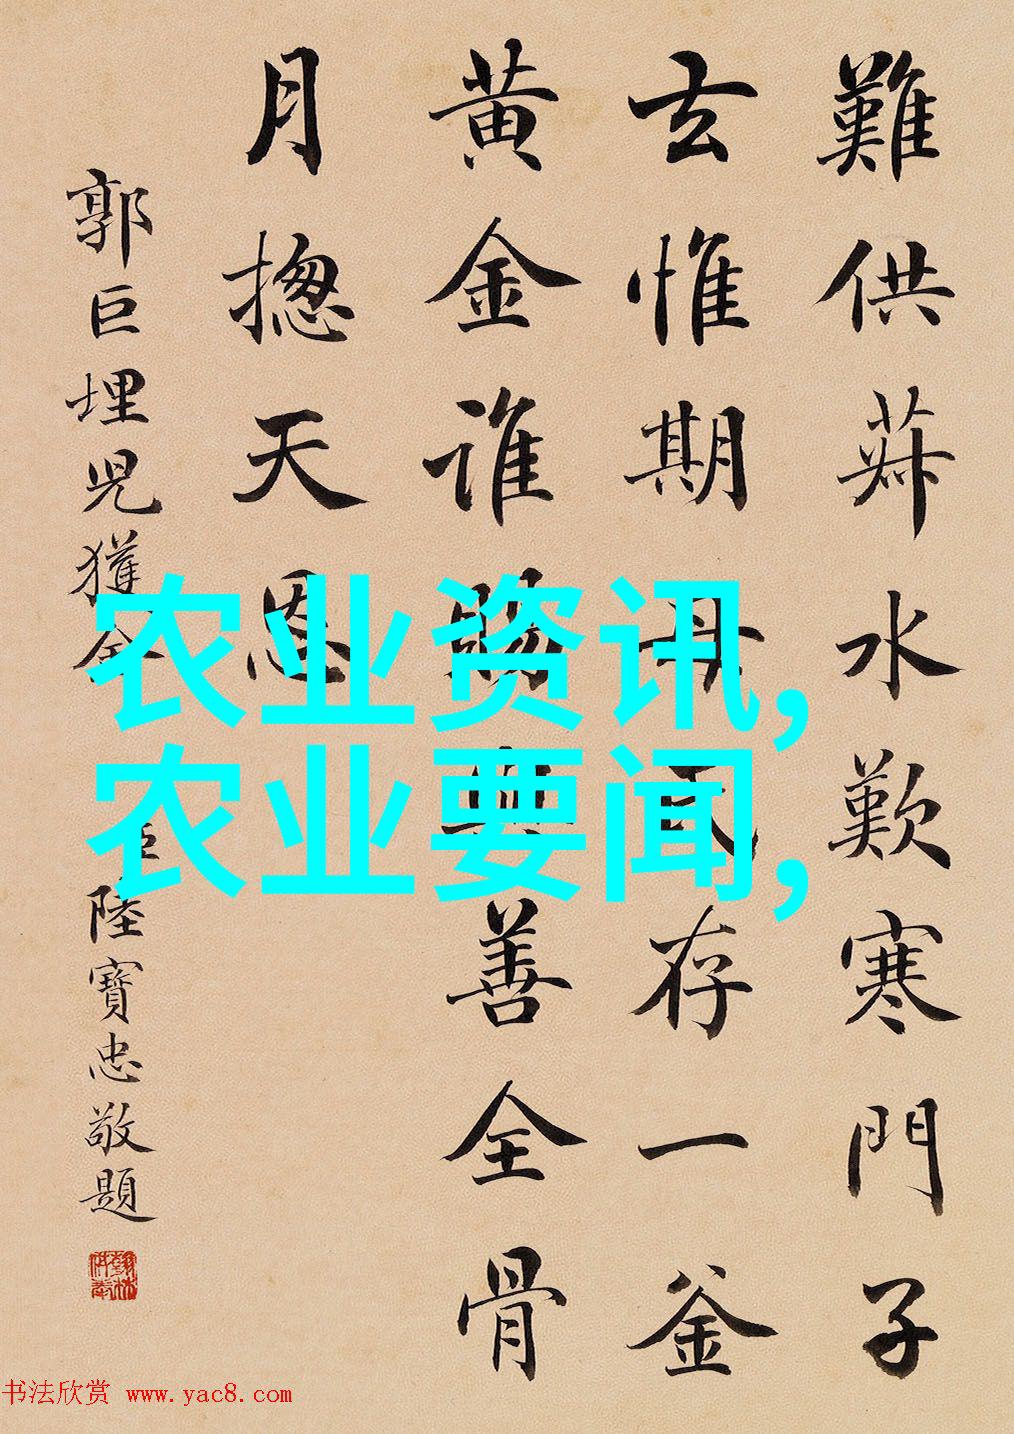 難供菽水歎寒門子
玄惟期母氏存一釜
黄金誰賜與善全骨
月揔天恩
郭巨埋兒獲金
臣陸寶忠敬題
翰林供奉
农业资讯,
农业要闻,
书法欣赏 www.yac8.com